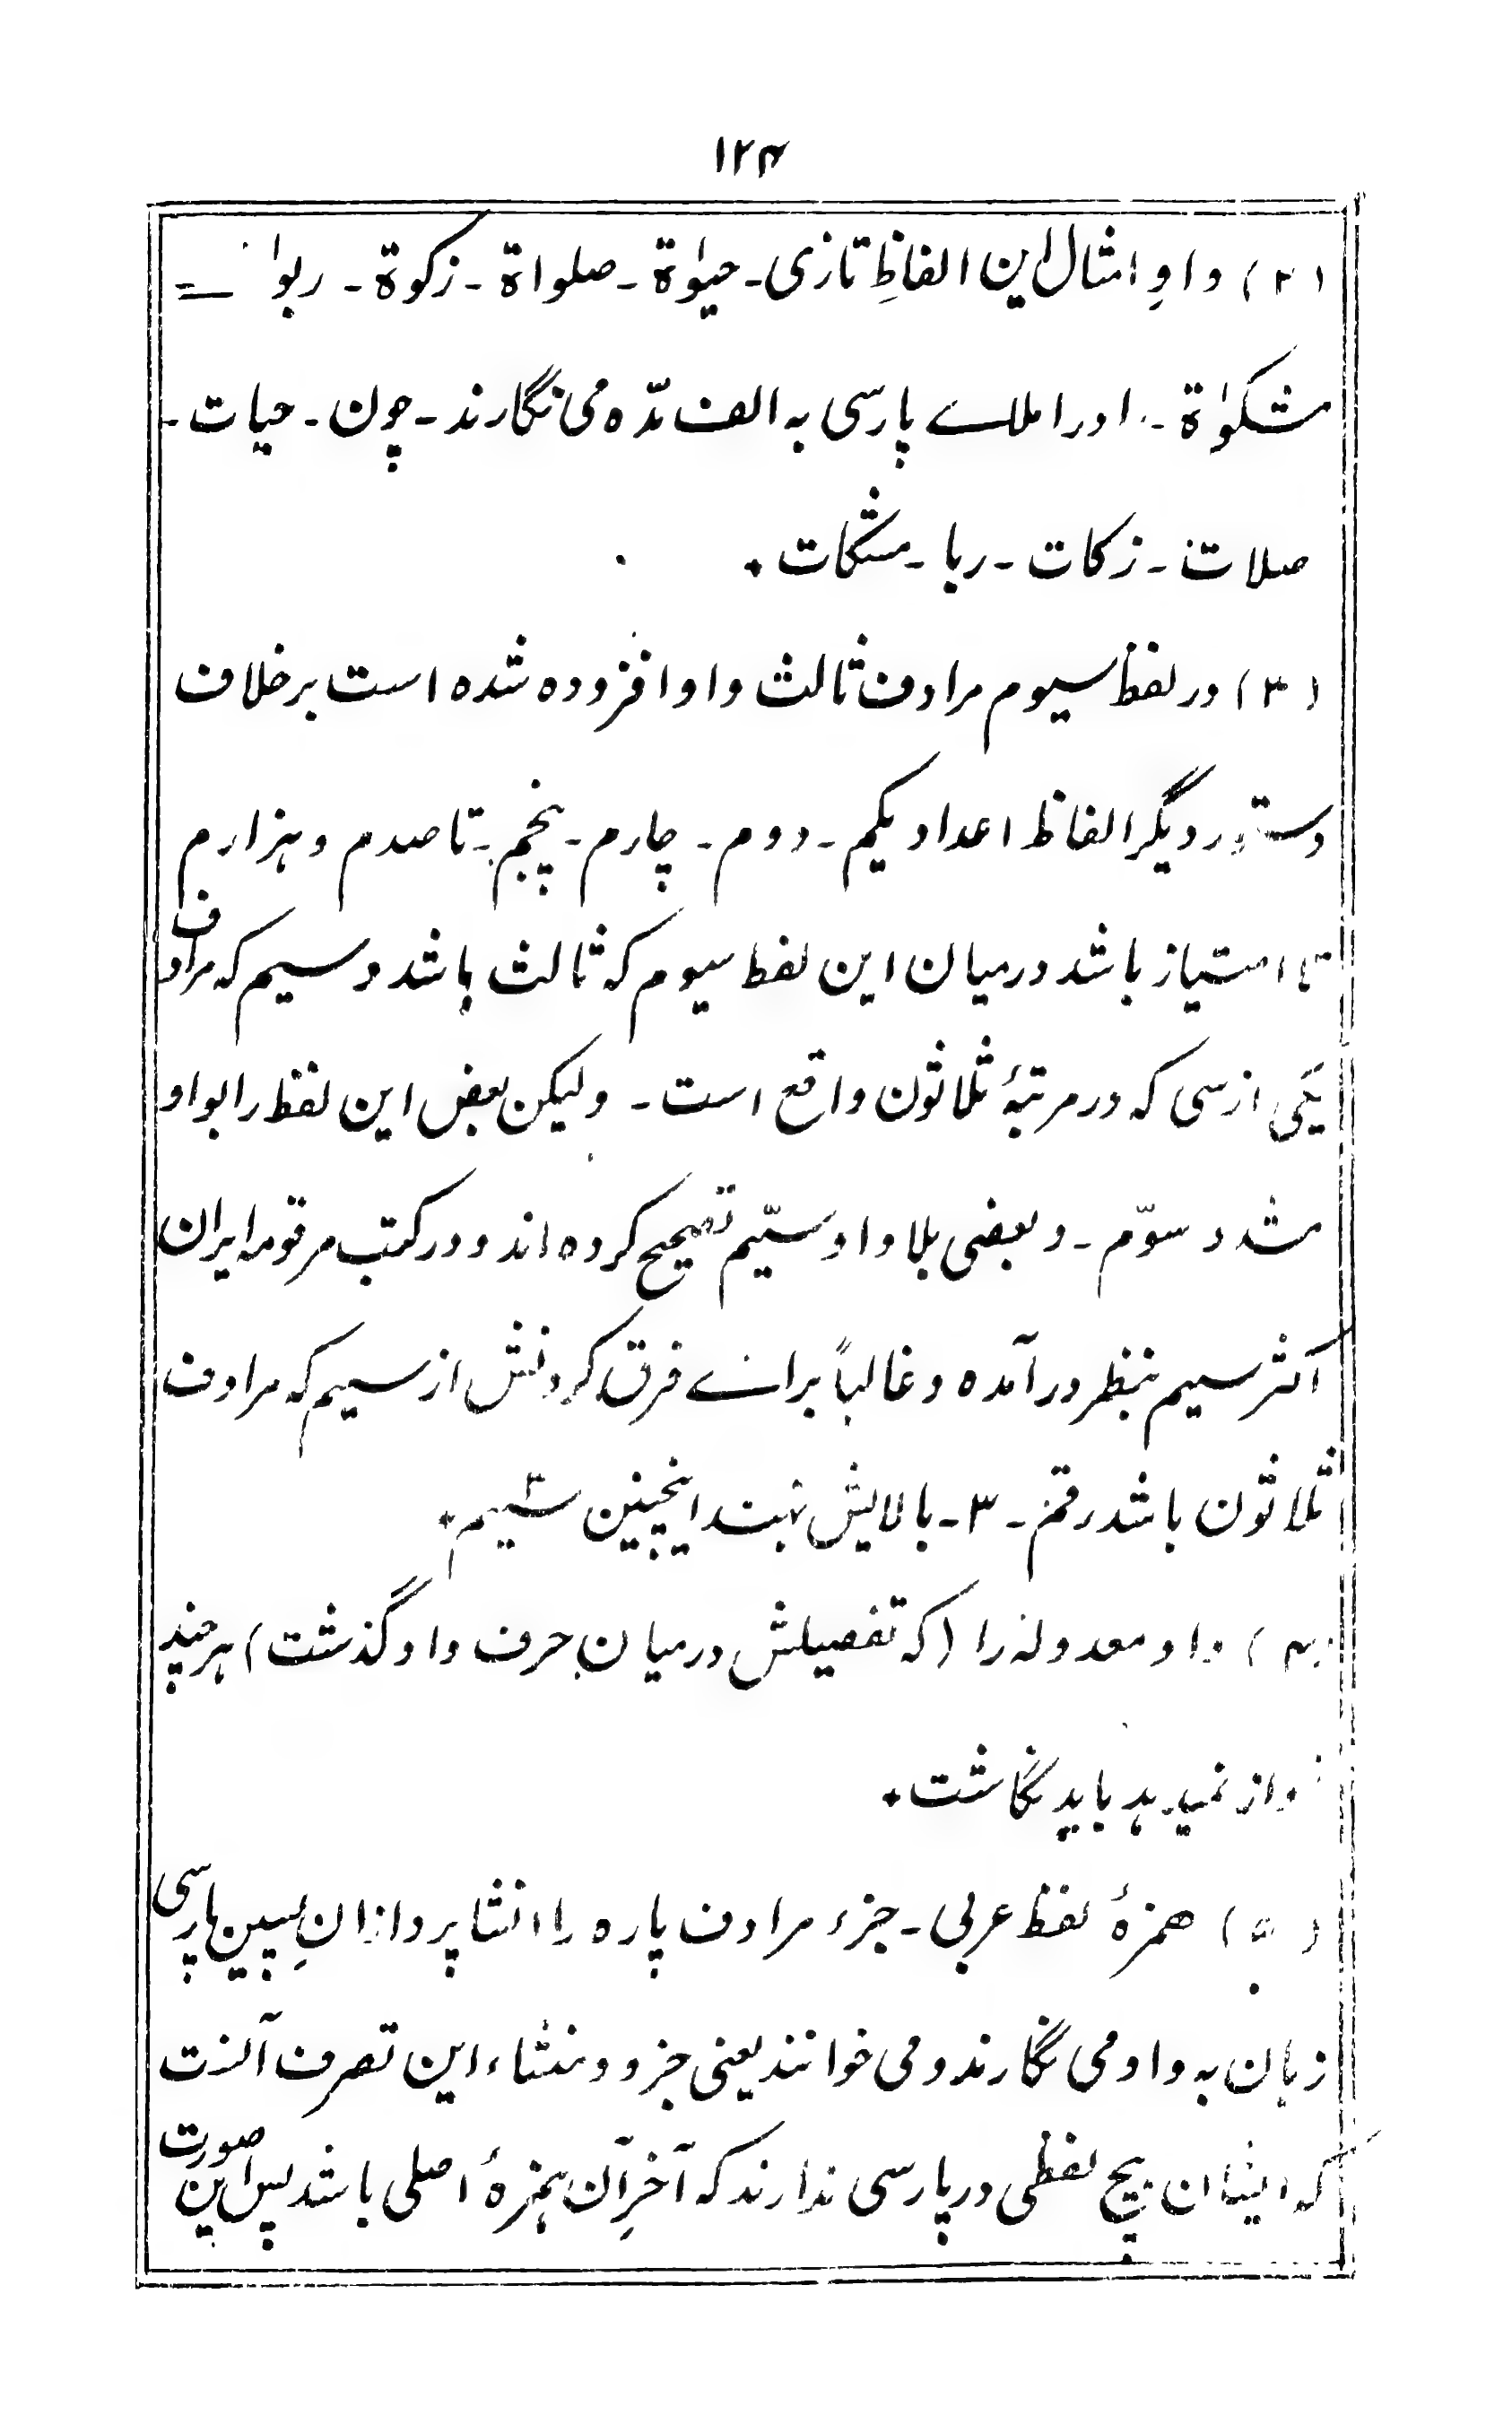 ۱۲۴
(۲) واوِ امثال این الفاظِ تازی ـ حیٰوة ـ صلواة ـ زکوة ـ ربوا ـ
مشکوٰة ـ در املاے پارسی به الف مدّه می نگارند ـ چون ـ حیات ـ
صلات ـ زکات ـ ربا ـ مشکات ٭
(۳) در لفظ سیوم مرادف ثالث واو افزوده شده است برخلاف
دستور دیگر الفاظ اعداد یکم ـ دوم ـ چارم ـ پنجم ـ تا صدم و هزارم
تا امتیاز باشد درمیان این لفظ سیوم که ثالث باشد و سیم که مرادف
یکی از سی که در مرتبۀ ثلاثون واقع است ـ ولیکن بعض این لفظ را بواو
مشدد سوّم ـ و بعضی بلا واو سیّم تصحیح کرده اند و در کتب مرقومه ایران
اکثر سیم بنظر در آمده و غالباً براے فرق کردنش از سیم که مرادف
ثلاثون باشد رقم ـ ۳ ـ بالایش نهند اینچنین سیم۳ ٭
(۴) واو معدوله را (که تفصیلش درمیان حرف واو گذشت) هر چند
آواز نمیدهد باید نگاشت ٭
(۵) همزۀ لفظ عربی ـ جزء مرادف پاره را انشا پردازانِ پسین پارسی
زبان به واو می نگارند و می خوانند یعنی جزو و منشاء این تصرف آنست
که اینان هیچ لفظی در پارسی ندارند که آخرِ آن همزۀ اصلی باشد پس این صورت